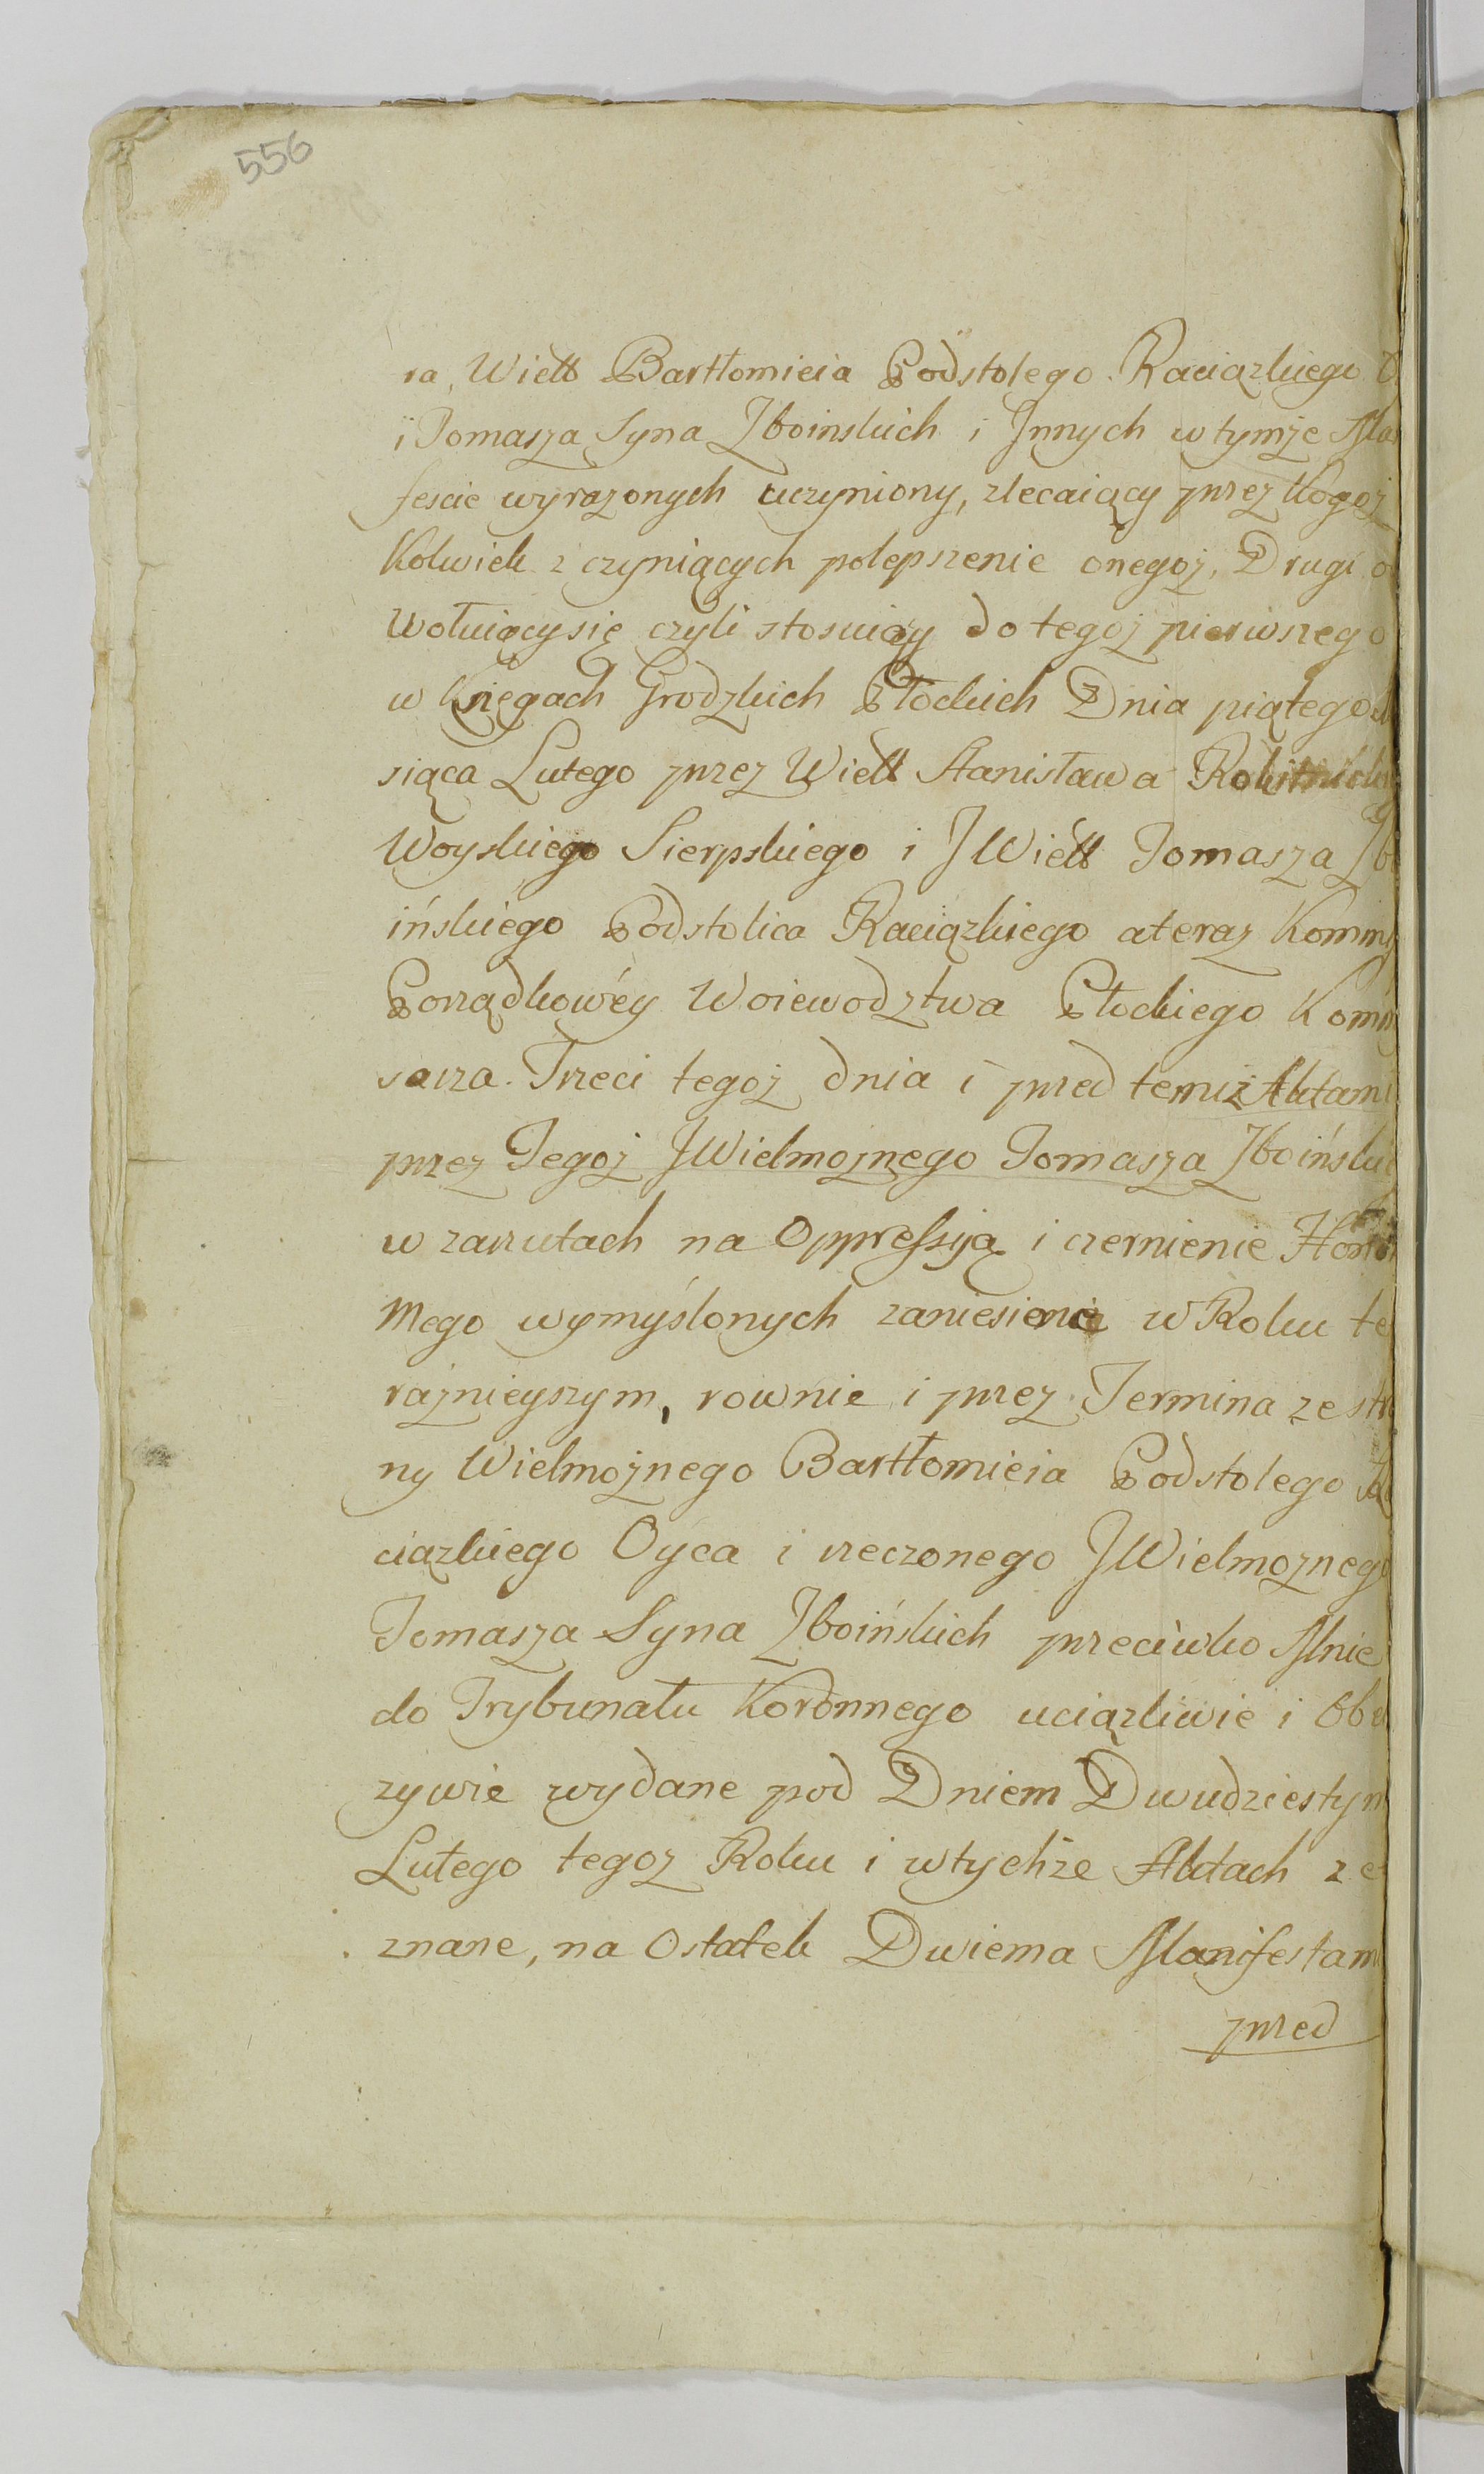 556
ra, Wiell Bartłomieia Podstolego Raciązkiego
i Tomasza Syna Zboinskich i Innych w tymże Ma
fescie wyrazonych uczyniony, zlecaiący przez kogoż
Kolwiek z czyniących polepszenie onegoż, Drugi o
wołuiący się czyli stosuiący do tegoż pierwszego
w Księgach Grodzkich Płockich Dnia piątego
siąca Lutego przez Wiell Stanisława
Woyskiego Sierpskiego i JWiell Tomasza Zbo
ińskiego Podstolica Raciązkiego a teraz Kommis
Porządkowéy Woiewodztwa Płockiego Kommis
sarza. Trzeci tegoż dnia i przed temiż Aktami
przez Tegoż JWielmożnego Tomasza Zboińskie
w zarzutach na Oppressyią i czernienie Honoru
Mego wymyślonych zaniesione w Roku te
raznieyszym, rownie i przez Termina ze stro
ny Wielmożnego Bartłomieia Podstolego Ra
ciązkiego Oyca i rzeczonego JWielmożnego
Tomasza Syna Zboińskich przeciwko Mnie
do Trybunału Koronnego uciązliwie i Obel
zywie wydane pod Dniem Dwudziestym
Lutego tegoż Roku i w tychże Aktach ze
znane, na Ostatek Dwiema Manifestami
przed